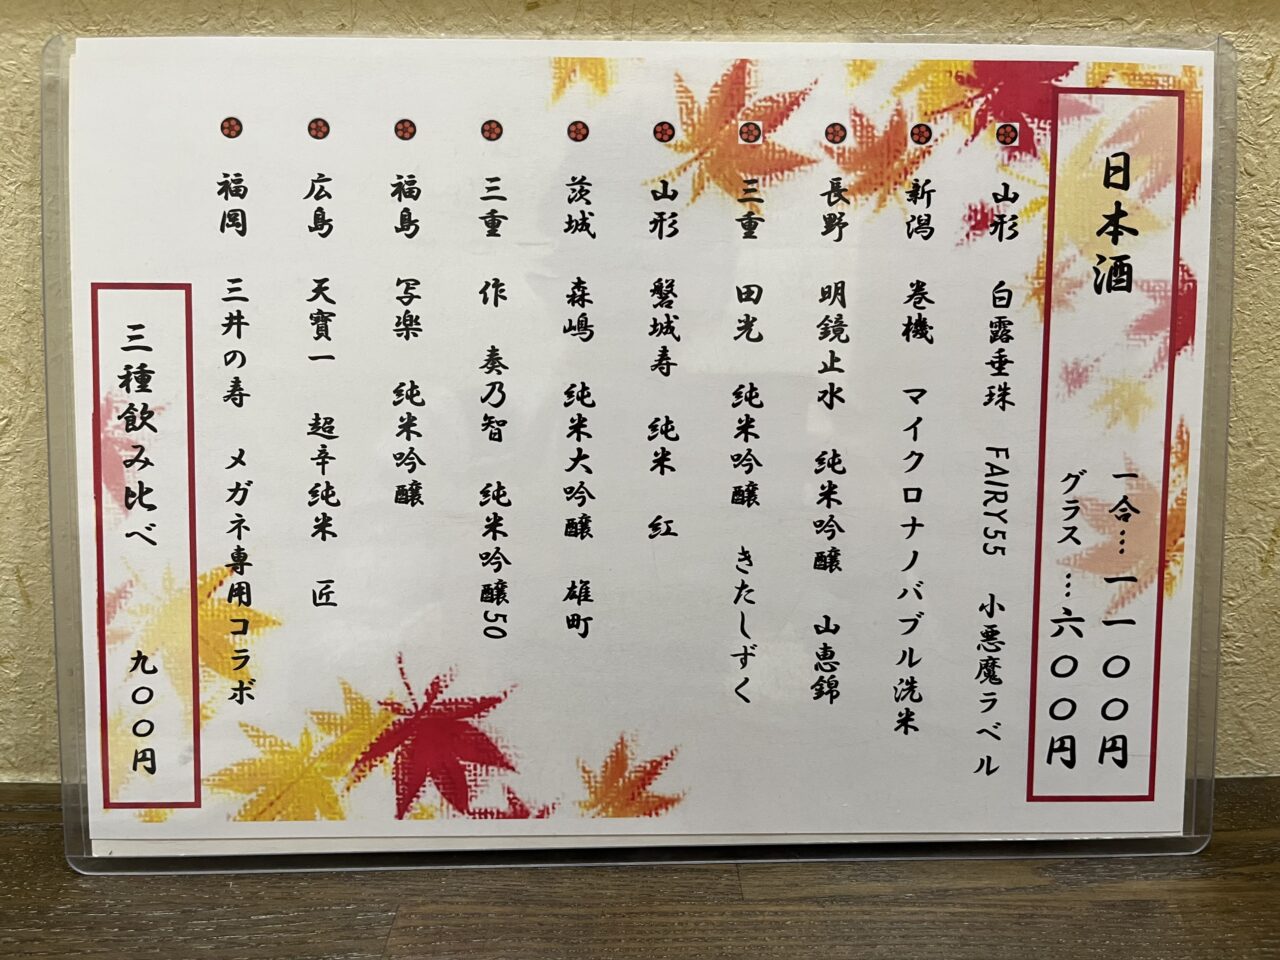 日本酒
一合…一一〇〇円
グラス…六〇〇円
山形 白露垂珠 FAIRY55 小悪魔ラベル
新潟 巻機 マイクロナノバブル洗米
長野 明鏡止水 純米吟醸 山恵錦
三重 田光 純米吟醸 きたしずく
山形 磐城寿 純米 紅
茨城 森嶋 純米大吟醸 雄町
三重 作 奏乃智 純米吟醸50
福島 写楽 純米吟醸
広島 天寶一 超辛純米 匠
福岡 三井の寿 メガネ専用コラボ
三種飲み比べ 九〇〇円